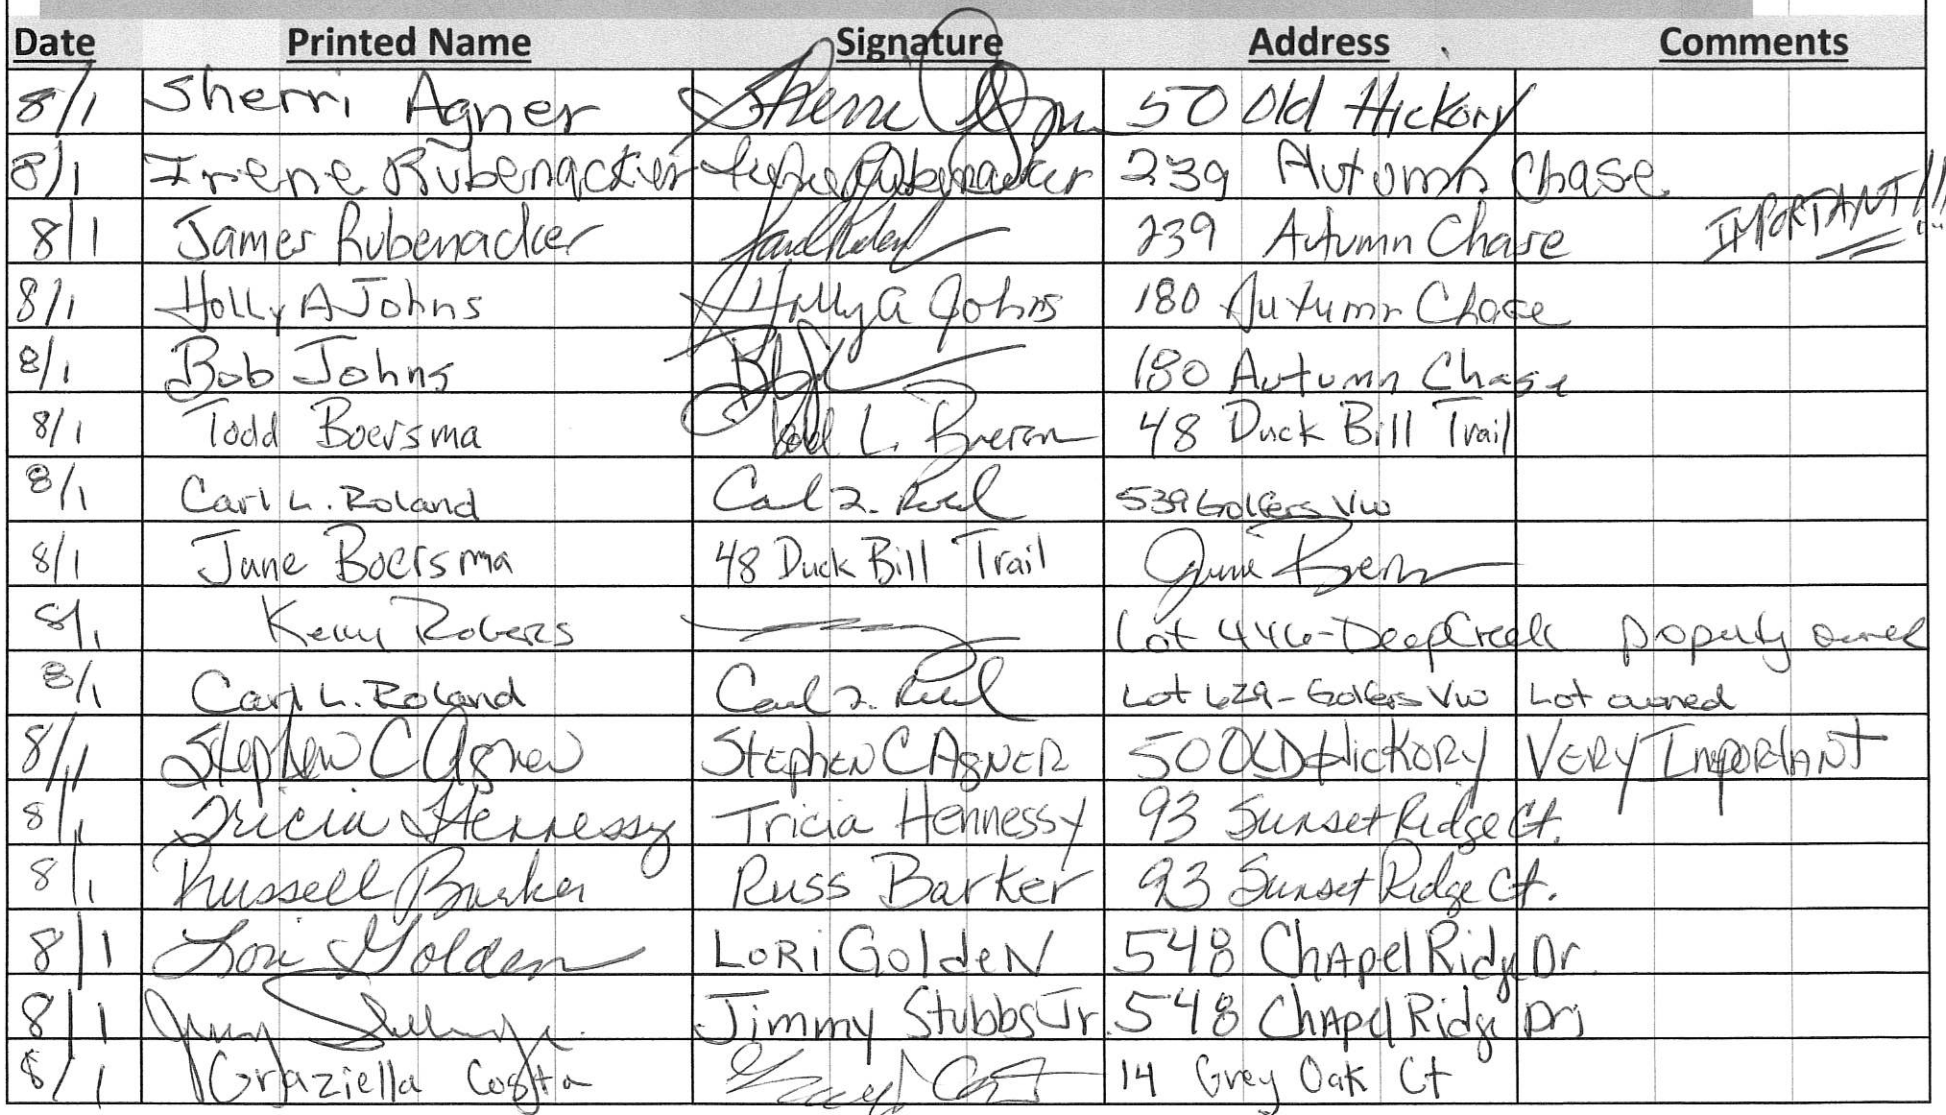 Date Printed Name Signature Address Comments
8/1 Sherri Agner Sherri 50 Old Hickory
8/1 Irene Rubenacker Irene Rubenacker 239 Autumn Chase
8/1 James Rubenacker 239 Autumn Chase IMPORTANT!!!
8/1 Holly A Johns Holly A Johns 180 Autumn Chase
8/1 Bob Johns 180 Autumn Chase
8/1 Todd Boersma Todd L. 48 Duck Bill Trail
8/1 Carl L. Roland Carl L. 539 Golfers Vw
8/1 June Boersma 48 Duck Bill Trail June
8/1 Lot 446-Deep Creek property owned
8/1 Carl L. Roland Carl L. Lot 629-Golfers Vw Lot owned
8/1 Stephen C Agner Stephen C Agner 50 Old Hickory Very Important
8/1 Tricia Hennessy Tricia Hennessy 93 Sunset Ridge Ct.
8/1 Russell Barker Russ Barker 93 Sunset Ridge Ct.
8/1 Lori Golden Lori Golden 548 Chapel Ridge Dr
8/1 Jimmy Stubbs Jr. 548 Chapel Ridge Dr
8/1 Graziella Costa 14 Grey Oak Ct